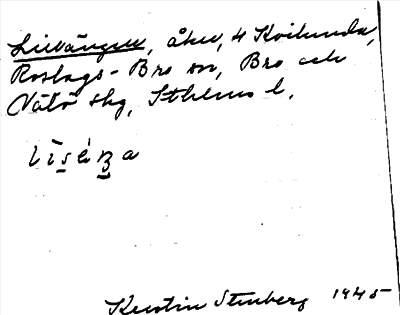 Lisängen, åker, 4 Kvilunda,
Roslags-Bro sn, Bro och
Vätö skg, Sthlms l.
Kerstin Stenberg 1945